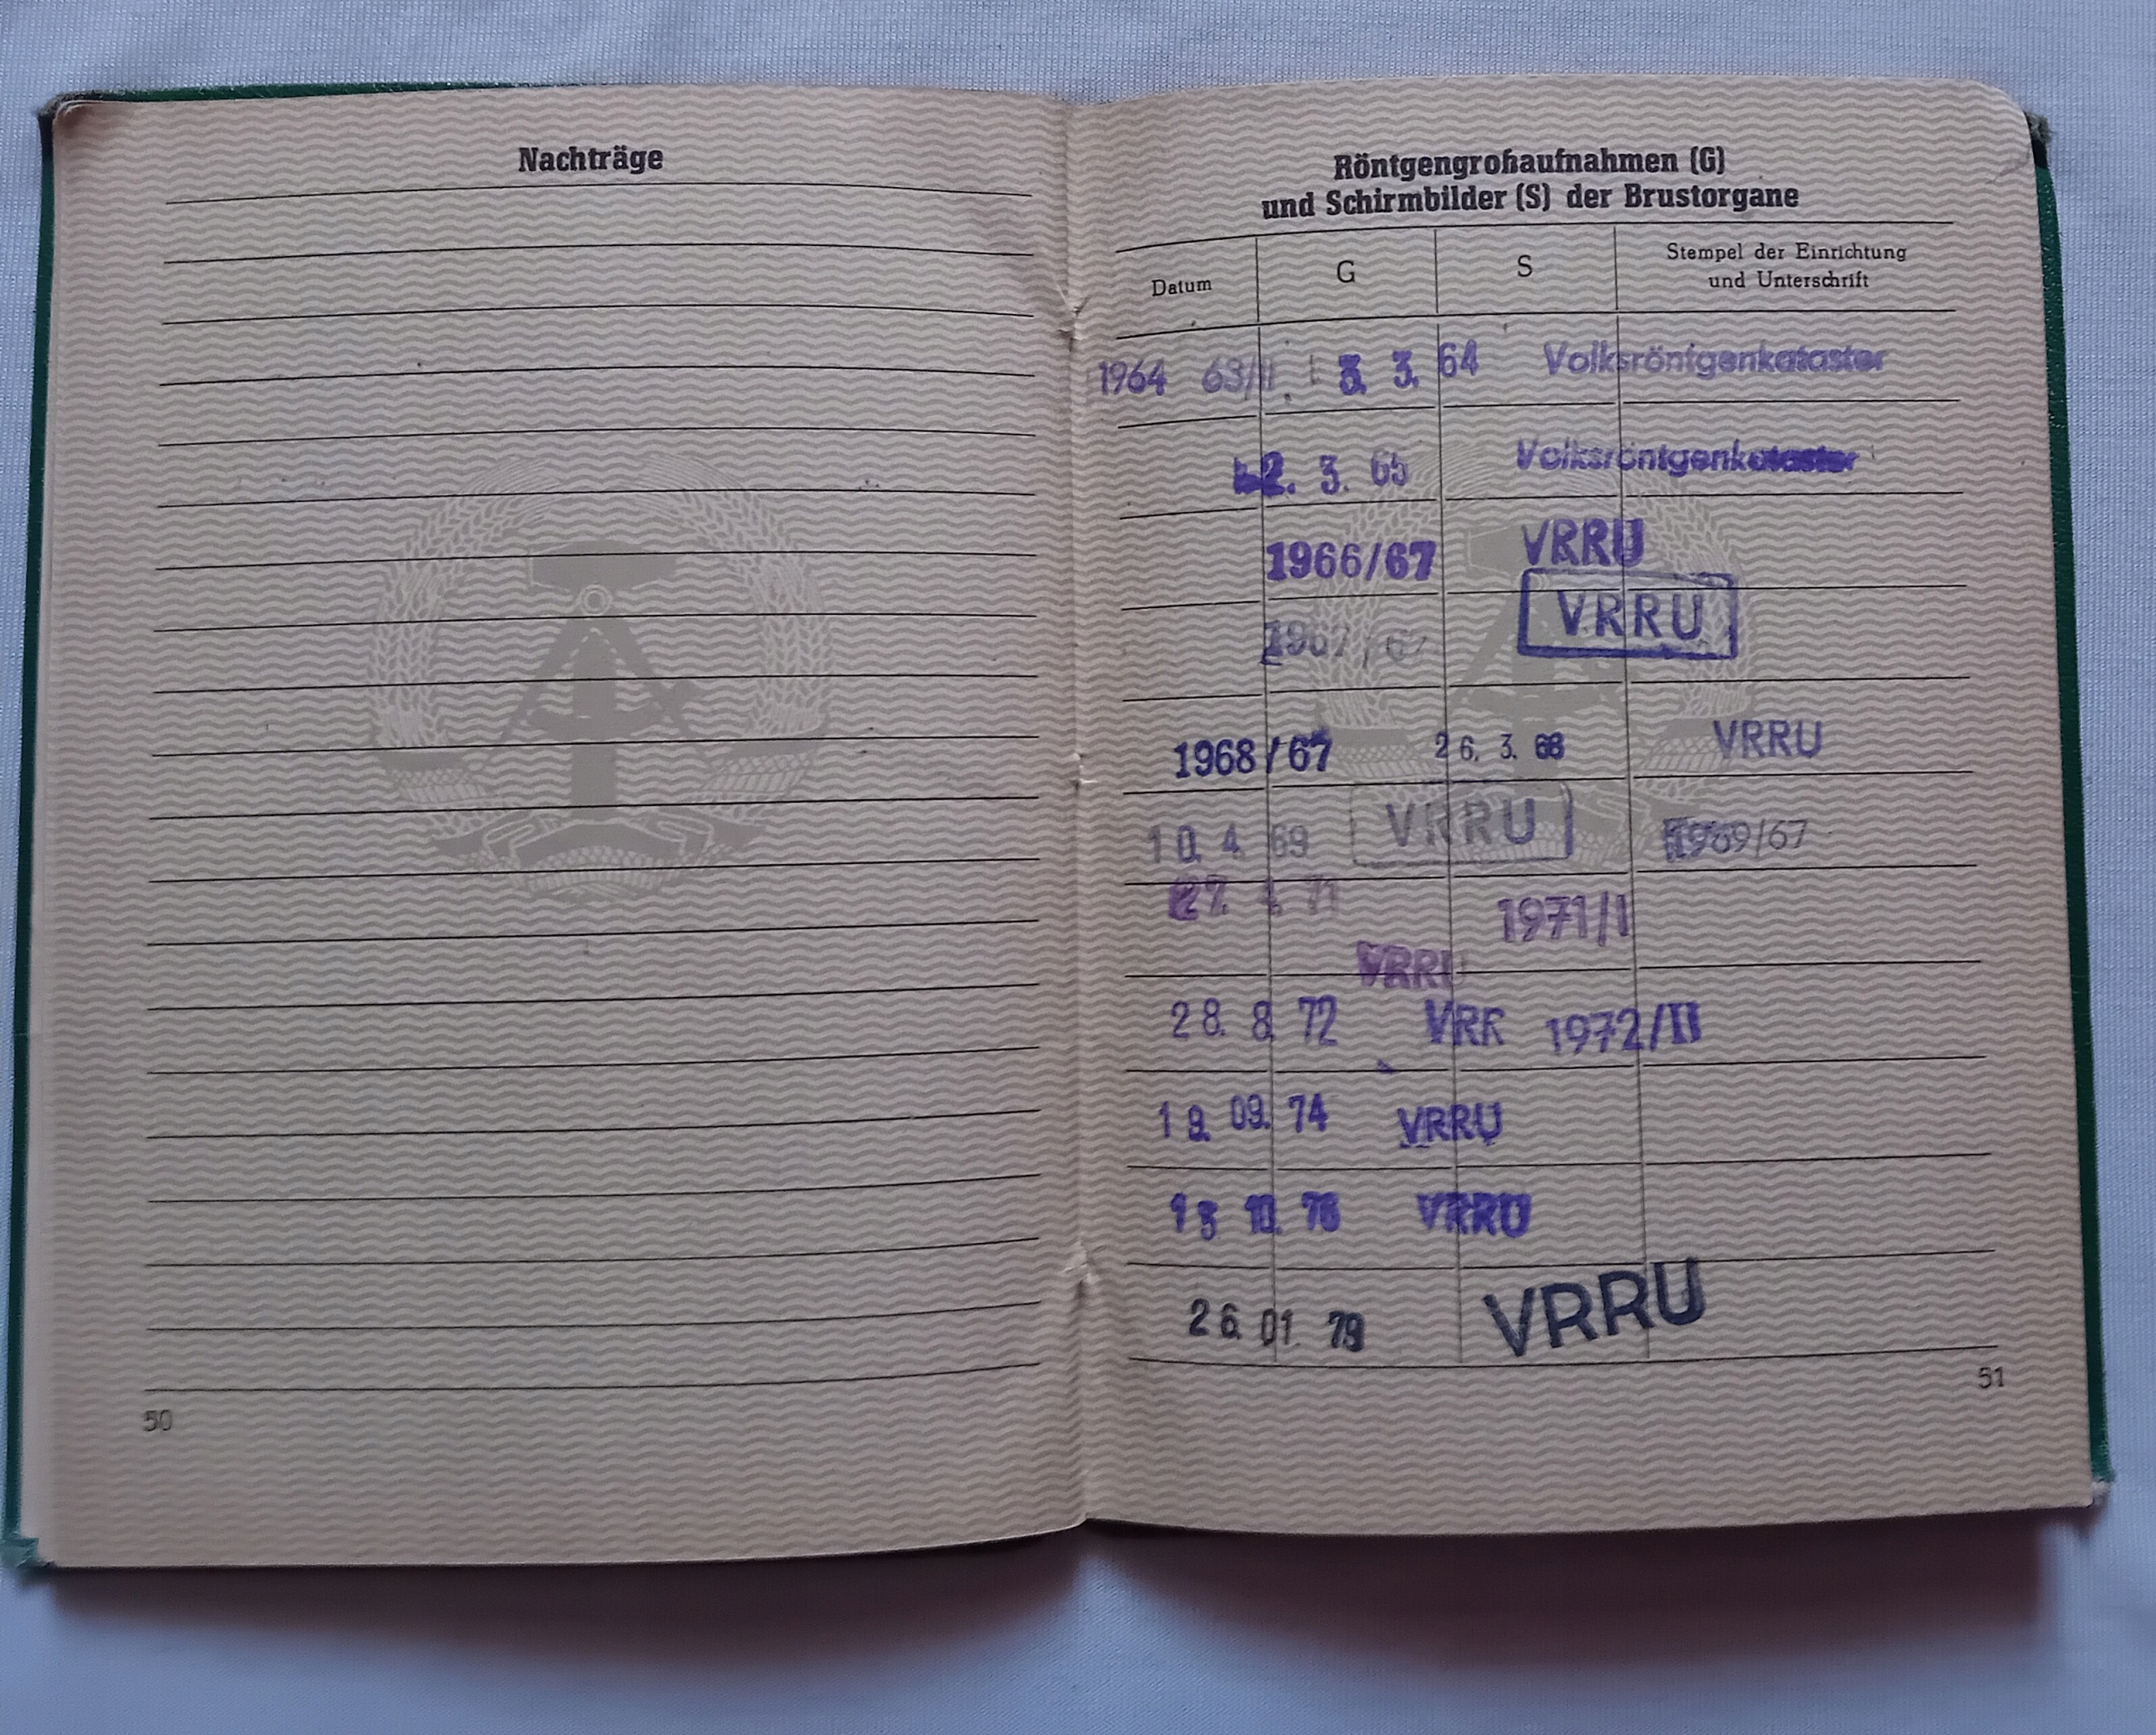 Nachträge
50
Röntgengroßaufnahmen (G)
und Schirmbilder (S) der Brustorgane
Datum G S Stempel der Einrichtung
und Unterschrift
1964 3. 64 Volksröntgenkataster
2. 3. 65 Volksröntgenkataster
1966/67 VRRU
VRRU
1968/67 26. 3. 68 VRRU
10. 4. 69 VRRU 1969/67
27. 71 1971/I
VRRU
28. 8. 72 VRR 1972/II
19. 09. 74 VRRU
VRRU
26. 01. 79 VRRU
51